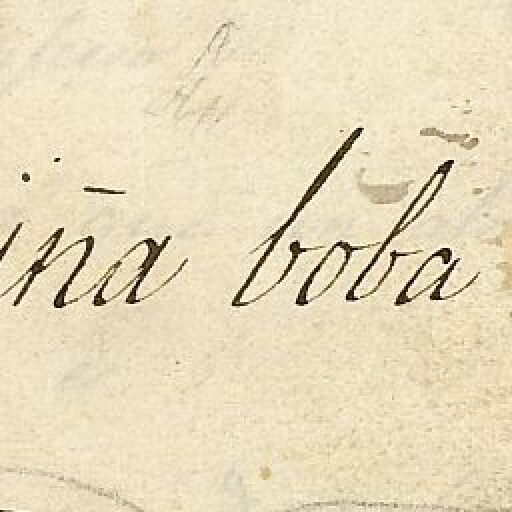 iña boba